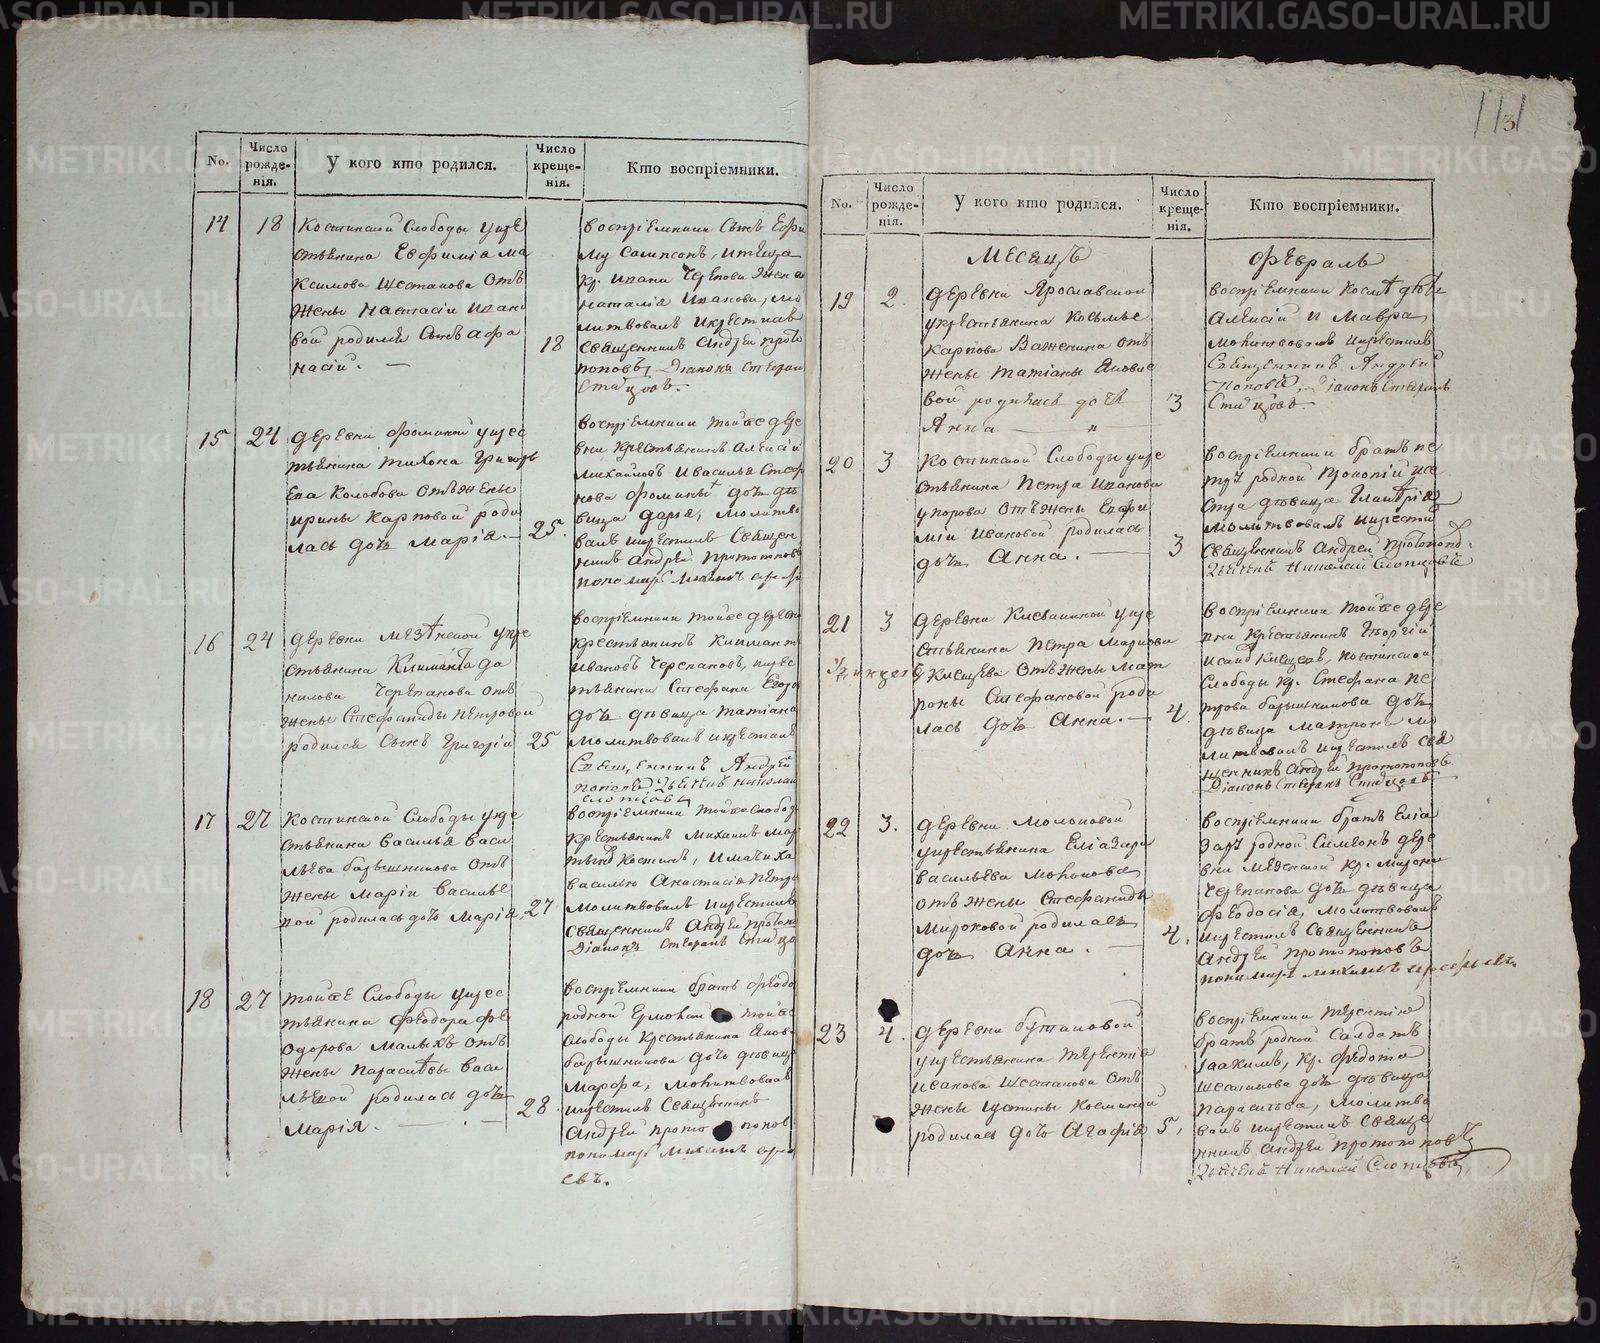 No.
Число рожде-нія.
У кого кто родился.
Число креще-нія.
Кто воспріемники.
14
18
Костинской Слободы укре
стьянина Евфиміа Ма
ксимова Шестакова отъ
жены Настасіи Ивано
вой родился сынъ Афа
насій. —
18
воспріемники сынъ Ефи
му Сампсонъ, и тещца
кр. Ивана Черепова жена
Наталіа Иванова, мо
литвовалъ и крестилъ
Священникъ Андрей прото
поповъ, Діаконъ Стефан
Стыцовъ.
15
24
деревни Фоминой укрес
тьянина Тихона Григорь
ева Колобова отъ жены
Ирины Карповой роди
лась дочь Марія. —
25.
воспріемники тойже дере
вни крестьянинъ Алексій
Михайловъ и Василья Стеф
нова Фоминыѣ дочь дѣ
вица Дарія, молитво
валъ и крестилъ Священ
никъ Андрей Протопоповъ
пономарь Михаилъ
16
24
деревни Мезѣнской укре
стьянина Климанта Да
нилова Черепанова отъ
жены Стефаниды Петровой
родился сынъ Григорій
25
воспріемники тойже деревни
крестьянинъ Климантъ
Ивановъ Черепановъ, икрес
тьянина Стефана Егоро
дочь дѣвица Татіана
молитвовалъ икрестилъ
Священникъ Андрей
поповъ, Дьячекъ Николай
Слопцовъ
17
27
Костинской Слободы укре
стьянина Василья Васи
льева Барышникова отъ
жены Маріи Василье
вой родилась дочь Марія,
27
воспріемники тойже Слобод
крестьянинъ Михаилъ Мар
тыновъ Костинъ, и мачиха
Василью Анастасіа Петро
молитвовалъ икрестилъ
Священникъ Андрей Протопо
Діаконъ Стефанъ Стыцо
18
27
тойже Слободы укрес
тьянина Феодора Фе
одорова Малыхъ отъ
жены Параскѣвы Васи
льевой родилась дочь
Марія. — . —
28.
воспріемники братъ Феодо
родной Ермолай тойже
Слободы Крестьянина Яков
Барышникова дочь дѣвица
Марфа, молитвовалъ
икрестилъ Священникъ
Андрей прото попов
пономарь Михаилъ
евъ.
131
No.
Число рожде-нія.
У кого кто родился.
Число креще-нія.
Кто воспріемники.
Месяцъ
Февраль
19
2
деревни Ярославской
укрестьянина Козьмы
Карпова Важенина отъ
жены Татіаны Яковле
вой родилась дочь
Анна — „
3
воспріемники Космѣ дѣти
Алексій и Мавра
молитвовалъ икрестилъ
Священникъ Андрей
Поповъ, Діаконъ Стефанъ
Стыцовъ.
20
3
Костинской Слободы укре
стьянина Петра Иванова
Упорова отъ жены Евфи
міи Ивановой родилась
дочь Анна. —
3
воспріемники братъ Пе
тру родной Прокопій исе
стра дѣвица Гликѣріа
молитвовалъ икрести
Священникъ Андрей Протопоп.
Дьячекъ Николай Слопцовъ
21
3
деревни Клевакиной укре
стьянина Петра Маркова
Клещева отъ жены Мат
роны Стефановой роди
лась дочь Анна. —
4.
воспріемники тойже дере
вни Крестьянинъ Георгій
Исаевъ Клещевъ, Костинской
Слободы кр. Стефана Пе
трова Барышникова дочь
дѣвица Матрона мо
литвовалъ икрестилъ Свя
щенникъ Андрей Протопоповъ
Діаконъ Стефанъ Стыцовъ
22
3.
деревни Молоковой
укрестьянина Еліазара
Васильева Молокова
отъ жены Стефаниды
Мироновой родилась
дочь Анна. —
4.
воспріемники братъ Еліа
зару родной Симеонъ дере
вни Мезенской кр. Мирона
Черепанова дочь дѣвица
Феодосіа, молитвовалъ
икрестилъ Священникъ
Андрей Протопоповъ
пономарь Михаилъ
23
4.
деревни Бутаковой
укрестьянина Терентіа
Иванова Шестакова отъ
жены Иустины Косминой
родилась дочь Агафіа
5,
воспріемники Терентію
братъ родной Салдатъ
Іоакимъ, кр. Федота
Шестакова дочь дѣвица
Параскѣва, молитво
валъ икрестилъ Священ
никъ Андрей Протопоповъ
Дьячекъ Николай Слопцовъ,
METRIKI.GASO-URAL.RU